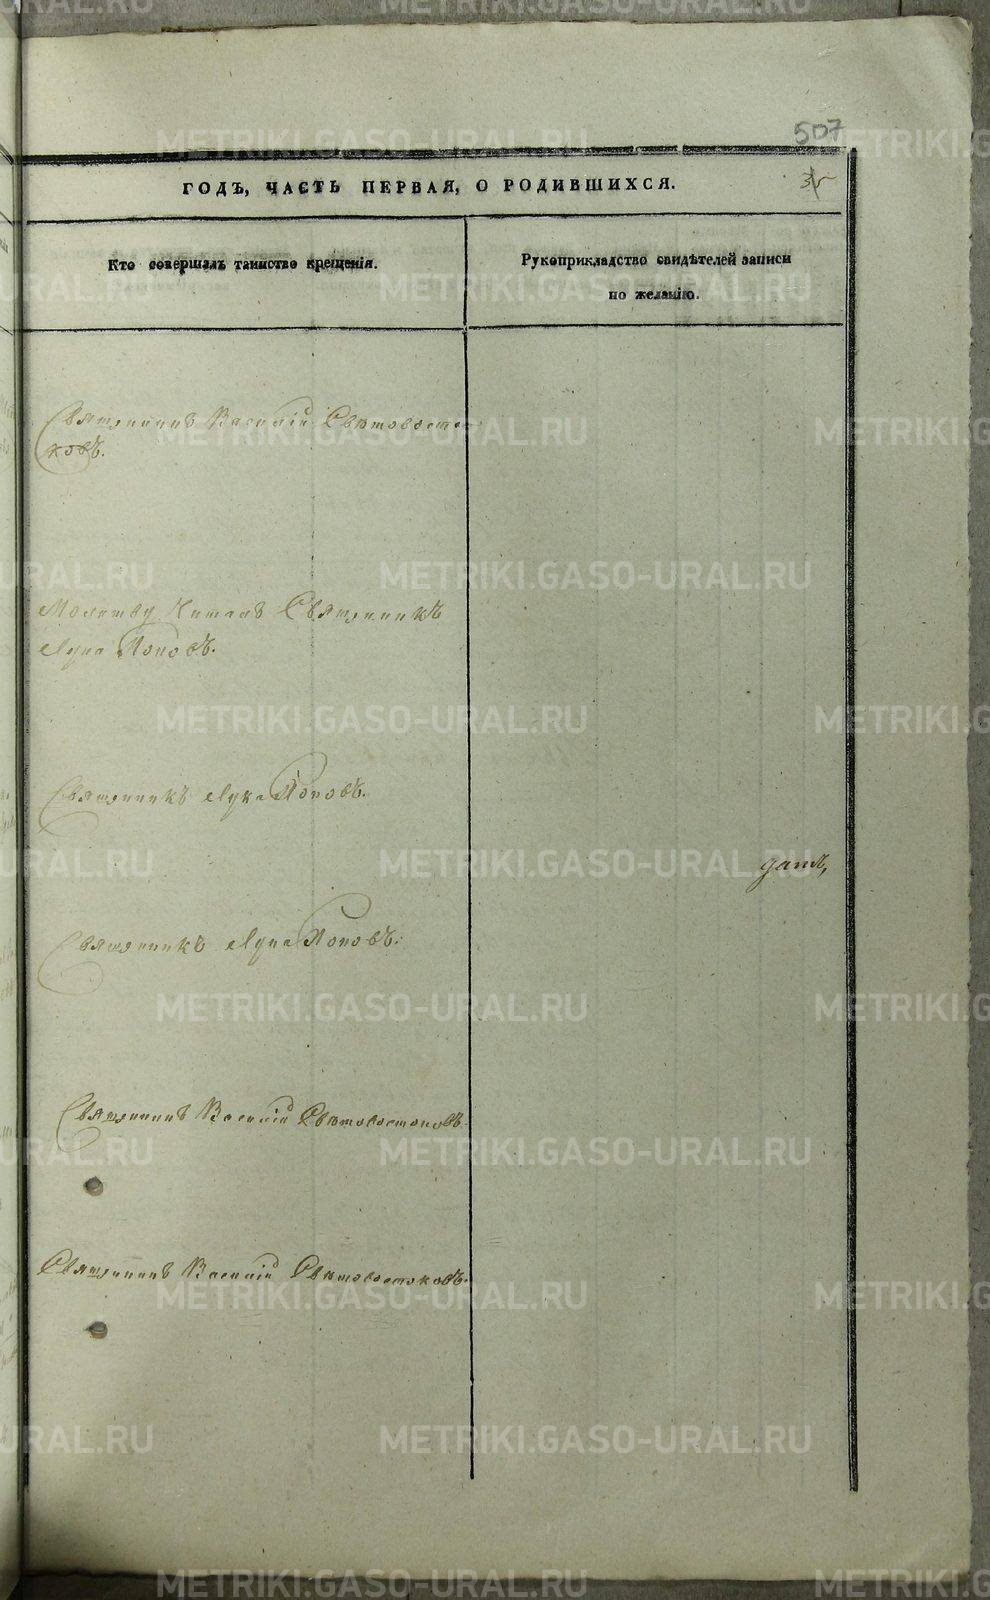 507
ГОДЪ, ЧАСТЬ ПЕРВАЯ, О РОДИВШИХСЯ.
35
Кто совершалъ таинство крещенія.
Рукоприкладство свидѣтелей записи
по желанію.
Священникъ Василій Свѣтовосто-
ковъ.
Молитву Читалъ Священникъ
Лука Поповъ.
Священникъ Лука Поповъ.
Священникъ Лука Поповъ.
Священникъ Василій Свѣтовостоковъ.
Священникъ Василій Свѣтовостоковъ.
METRIKI.GASO-URAL.RU